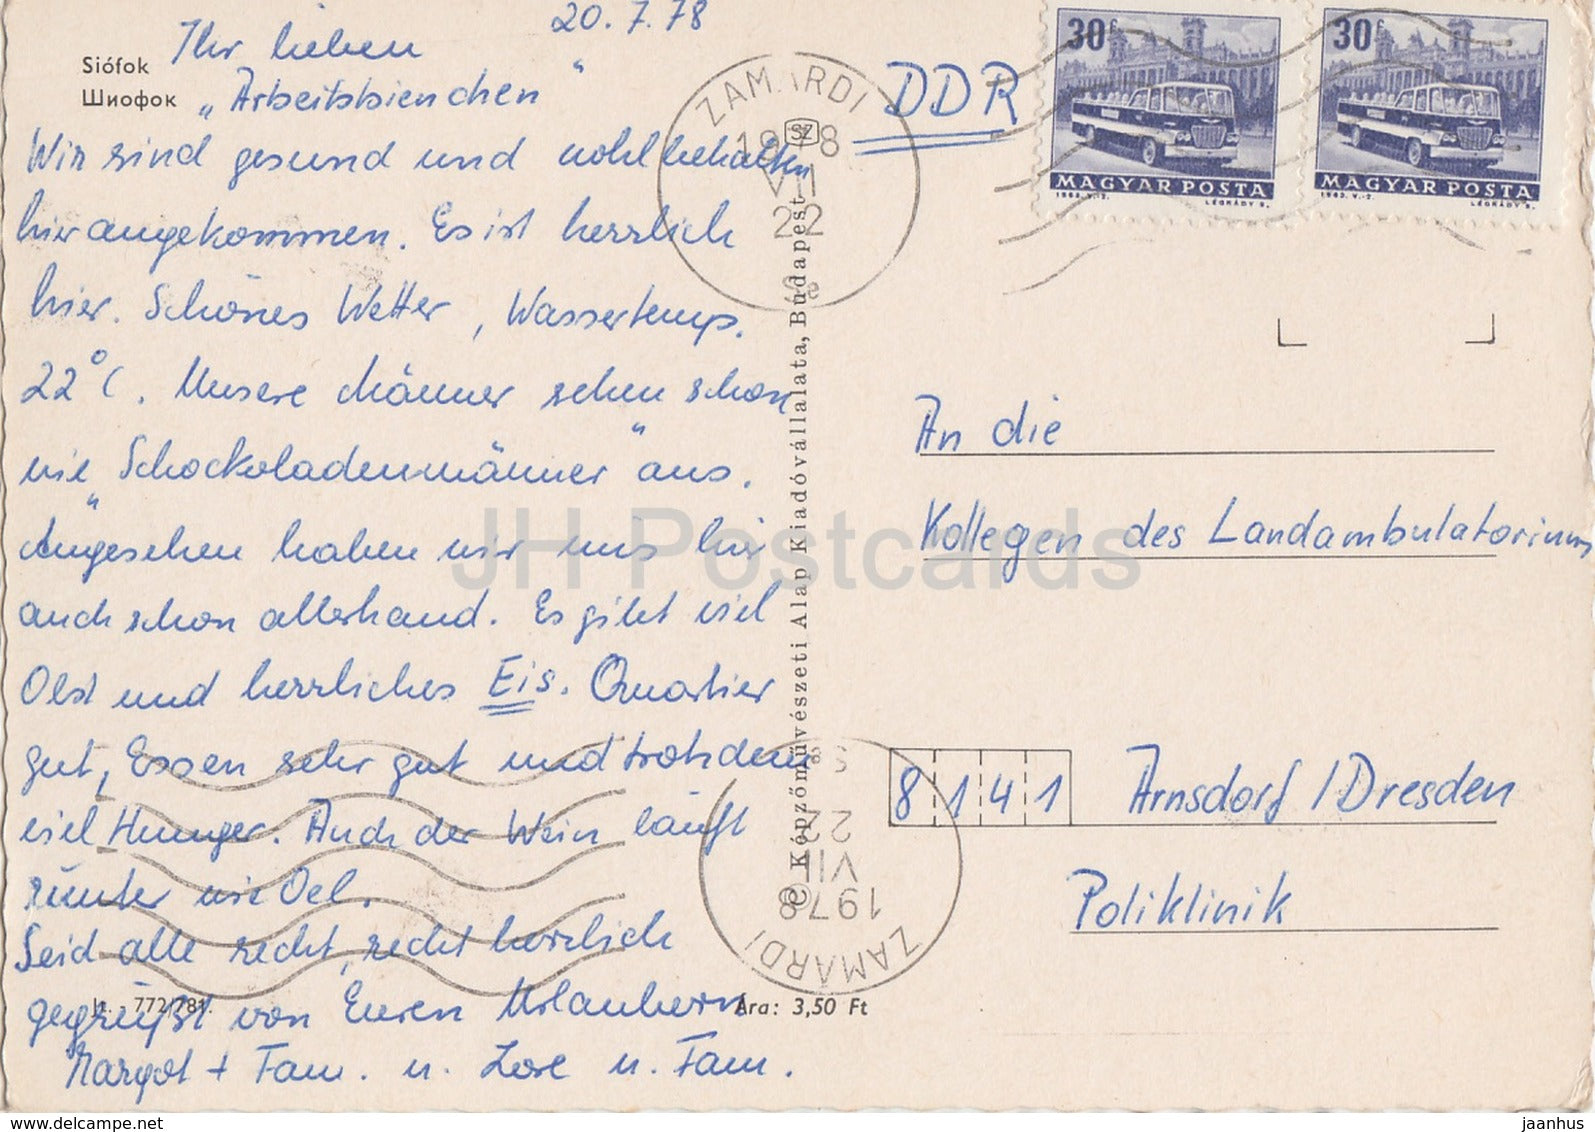 20.7.78
Siófok
Шиофок
Ihr lieben
„Arbeitsbienchen“
Wir sind gesund und wohlbehalten
hier angekommen. Es ist herrlich
hier. Schönes Wetter, Wassertemp.
22°C. Unsere Männer sehen schon
wie „Schockoladenmänner“ aus.
Angesehen haben wir uns hier
auch schon allerhand. Es gibt viel
Obst und herrliches Eis. Quartier
gut, Essen sehr gut und trotzdem
viel Hunger. Auch der Wein läuft
runter wie Oel.
Seid alle recht, recht herzlich
gegrüßt von Euren Urlaubern
Margot + Fam. u. Lore u. Fam.
772/781.
Ára: 3,50 Ft
© Képzőművészeti Alap Kiadóvállalata, Budapest
ZAMÁRDI
SZ
1978
VII
22
DDR
30f
MAGYAR POSTA
1963. V.-2.
LÉGRÁDY S.
30f
MAGYAR POSTA
1963. V.-2.
LÉGRÁDY S.
An die
Kollegen des Landambulatoriums
8141 Arnsdorf / Dresden
Poliklinik
ZAMÁRDI
1978
VII
22
JH Postcards
delcampe.net
jaanhus